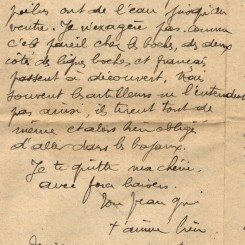 poilus ont de l'eau jusqu'au
ventre. Je n'exagère pas. comme
c'est pareil chez les boches, des deux
cotés des lignes boches et francais
passent à découvert, mais
souvent les artilleurs ne l'entendent
pas ainsi, ils tirent tout de
même et alors bien obligé
d'aller dans les boyaux.
Je te quitte ma chérie
avec gros baisers.
Ton Jean qui
t'aime bien.